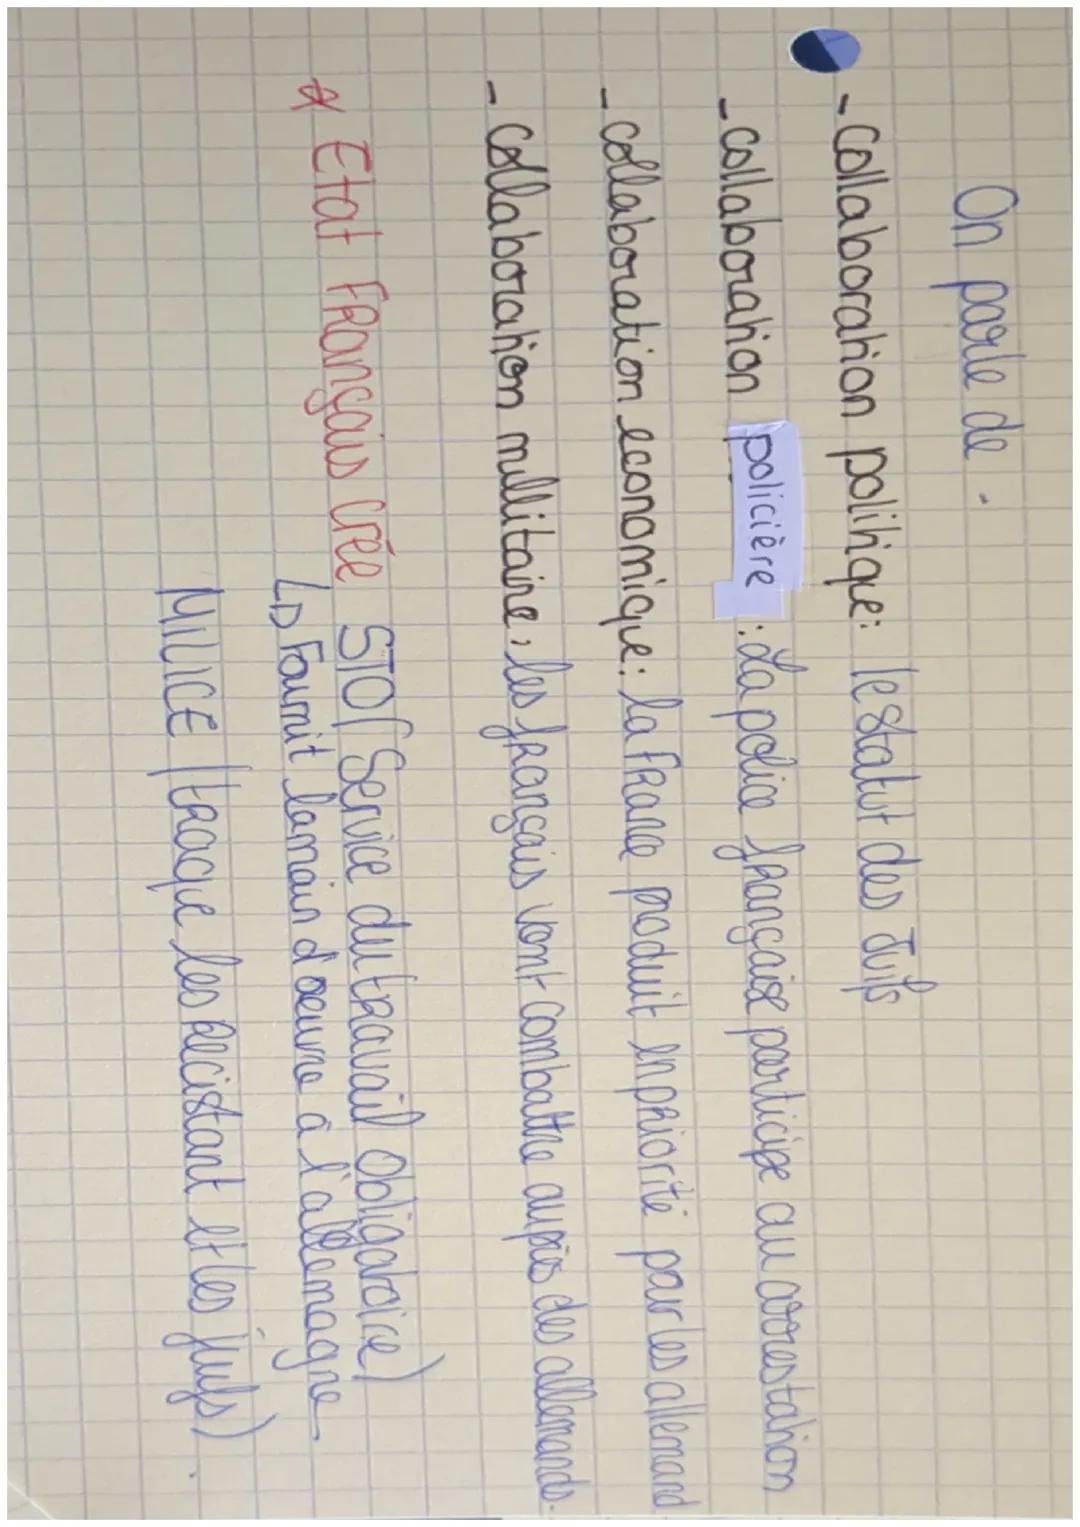 On parle de.
- Collaboration politique: le statut des Juifs
- collaboration policière : La police française participe au arrestation
- collaboration economique: la France produit en priorité par les allemand
- Collaboration millitaire: les français vont combattre auprès des allemands.
* Etat Français Crée STO (Service du travail Obligatoire)
↳ Fournit la main d'oeuvre a l'allemagne
MILICE (traque les récistant et les juifs).